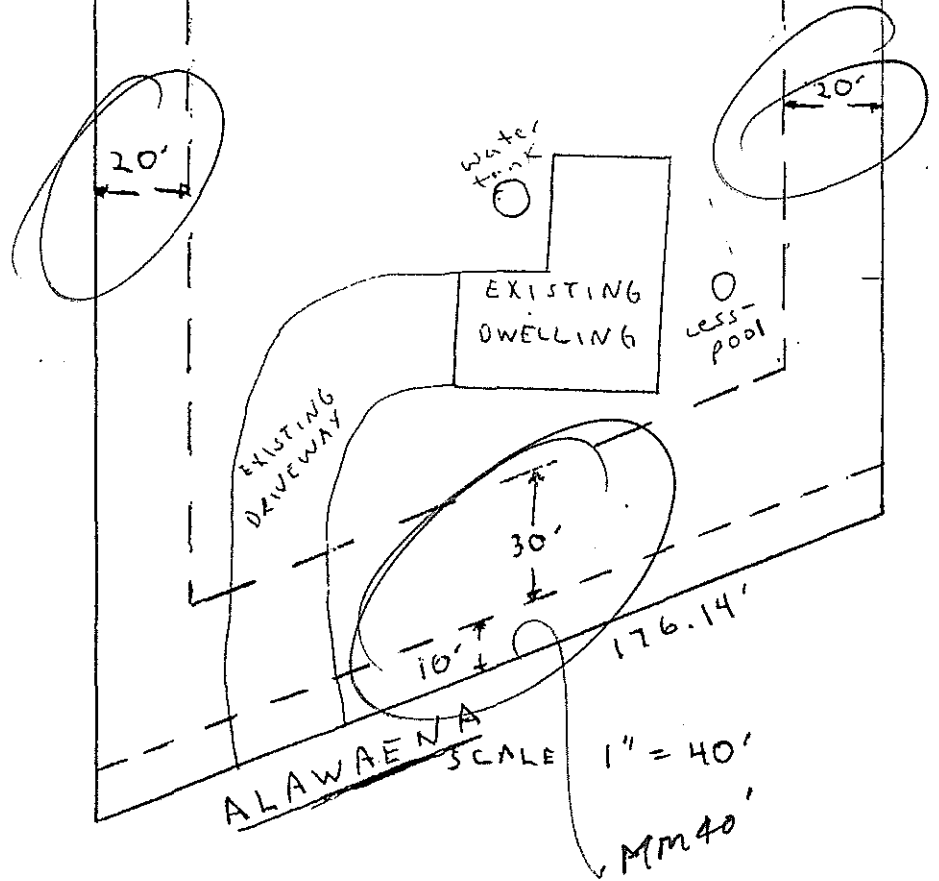 20'
20'
water
tank
EXISTING
DWELLING
cess-
pool
EXISTING
DRIVEWAY
30'
10'
176.14'
ALAWAENA
SCALE 1" = 40'
40'